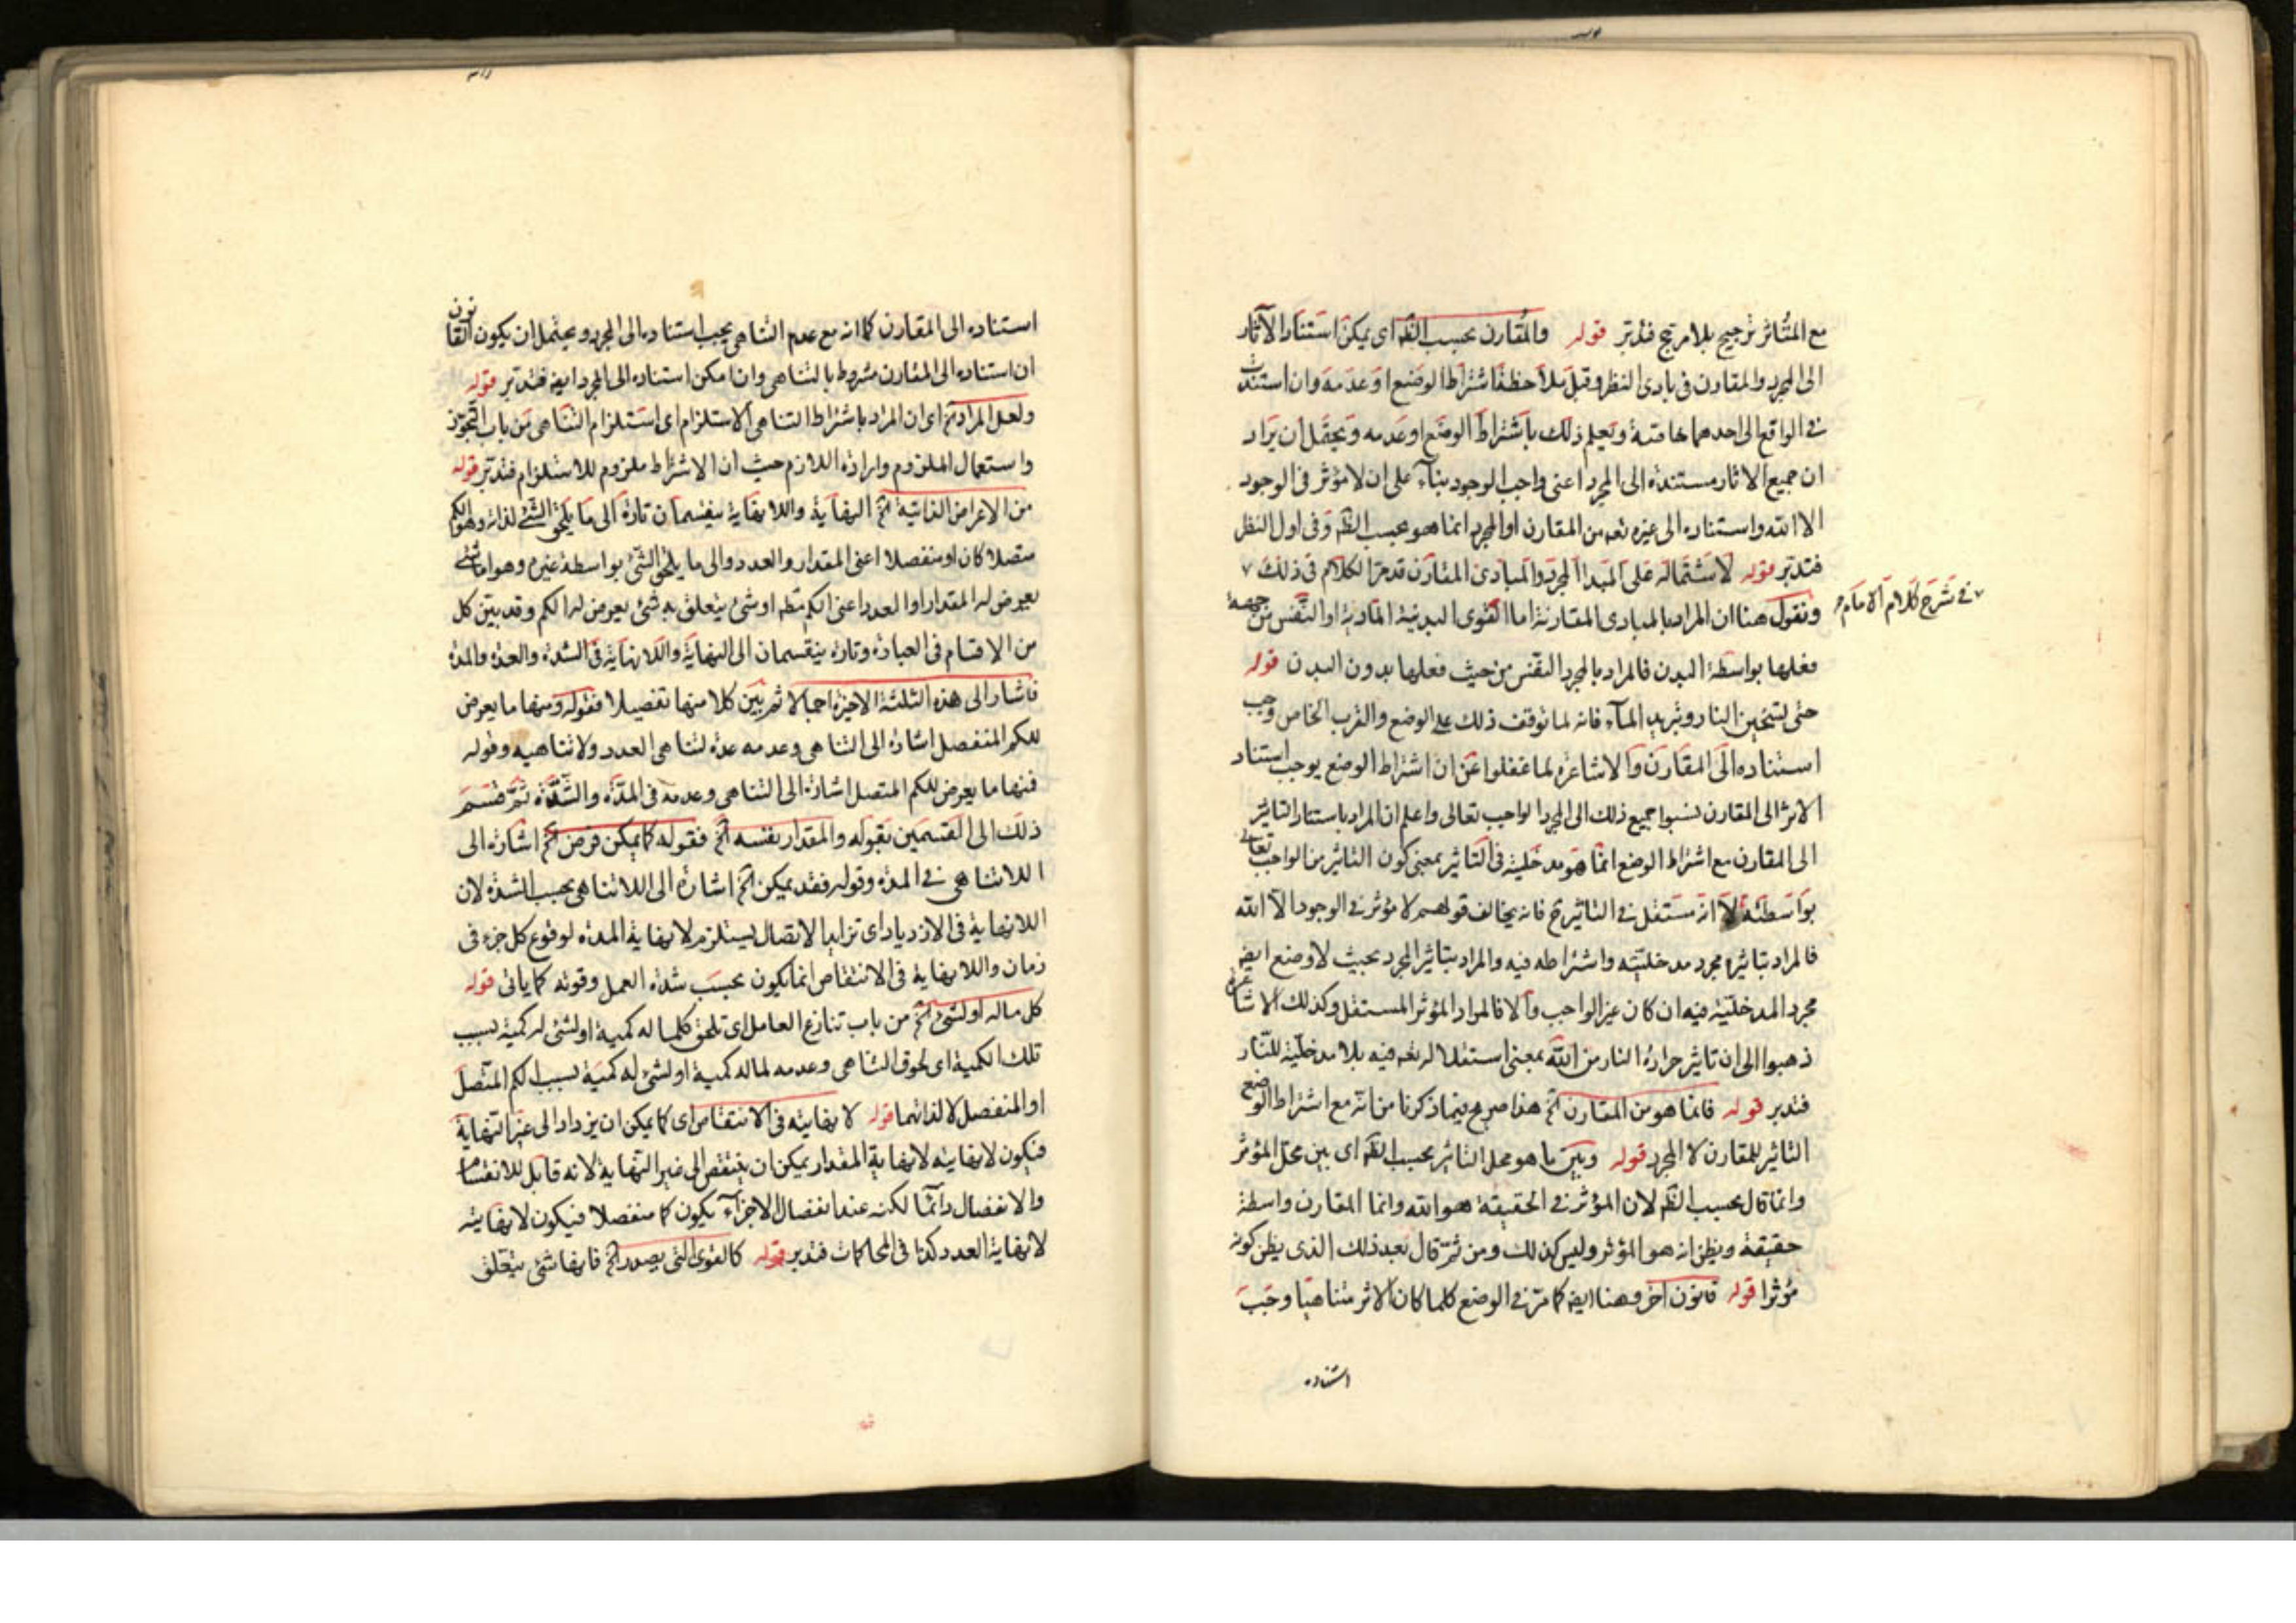 مع المتأثر ترجيح بلا مرجح فتدبر قوله والمقارن بحسب الظه اى يمكن استناد الآثار
الى المجرد والمقارن فى بادى النظر وقبل ملاحظة اشتراط الوضع او عدمه وان استندت
فى الواقع الى احدهما خاصة ويعلم ذلك باشتراط الوضع او عدمه ويحتمل ان يراد
ان جميع الاثار مستندة الى المجرد اعنى واجب الوجود بناء على ان لا مؤثر فى الوجود
الا الله واستناده الى غيره تعه من المقارن او المجرد انما هو بحسب الظه وفى اول النظر
فتدبر قوله لاشتماله على المبدأ المجرد والمبادى المقارن قد مر الكلام فى ذلك ٧
٧ فى شرح كلام الامام
ونقول هنا ان المراد بالمبادى المقارنة اما القوى البدنية المادية او النفس من جهة
فعلها بواسطة البدن فالمراد بالمجرد النفس من حيث فعلها بدون البدن قوله
حتى تسخين النار وتبريد الماء فانه لما توقف ذلك على الوضع والقرب الخاص وجب
استناده الى المقارن والاشاعره لما غفلوا عن ان اشتراط الوضع يوجب استناد
الاثر الى المقارن نسبوا جميع ذلك الى المجرد الواجب تعالى واعلم ان المراد باستناد التاثير
الى المقارن مع اشتراط الوضع انما هو مدخليته فى التاثير بمعنى كون التاثير من الواجب تعالى
بواسطته لا انه مستقل فى التاثير ح فانه يخالف قولهم لا مؤثر فى الوجود الا الله
فالمراد بتاثيره مجرد مدخليته واشتراطه فيه والمراد بتاثير المجرد بحيث لا وضع ايضه
مجرد المدخلية فيه ان كان غير الواجب والا فالمراد المؤثر المستقل وكذلك الاشاعرة
ذهبوا الى ان تاثير حرارة النار من الله بمعنى استقلاله تعه فيه بلا مدخلية للنار
فتدبر قوله فانما هو من المقارن آه هذا صريح فيما ذكرنا من انه مع اشتراط الوضع
التاثير للمقارن لا المجرد قوله وبين ما هو محل التاثير بحسب الظه اى بين محل المؤثر
وانما قال بحسب الظه لان المؤثر فى الحقيقة هو الله وانما المقارن واسطة
حقيقة ويظن انه هو المؤثر وليس كذلك ومن ثم قال بعد ذلك الذى يظن كونه
مؤثرا قوله قانون اخر وهنا ايضه كما مر فى الوضع كلما كان الاثر متناهيا وجب
استناده
استناده الى المقارن كما انه مع عدم التناهى يجب استناده الى المجرد ويحتمل ان يكون القانون
ان استناده الى المقارن مشروط بالتناهى وان امكن استناده الى المجرد ايضه فتدبر قوله
ولعل المراد آه اى ان المراد باشتراط التناهى الاستلزام اى استلزام التناهى من باب التجوز
واستعمال الملزوم وارادة اللازم حيث ان الاشتراط ملزوم للاستلزام فتدبر قوله
من الاعراض الذاتية آه النهاية واللانهاية ينقسمان تارة الى ما يلحق الشئ لذاته وهو الكم
متصلا كان او منفصلا اعنى المقدار والعدد والى ما يلحق الشئ بواسطة غيره وهو اما شئ
يعرض له المقدار او العدد اعنى الكم مثله او شئ يتعلق به شئ يعرض له الكم وقد بين كل
من الاقسام فى العبارة وتارة ينقسمان الى النهاية واللانهاية فى الشدة والعدة والمدة
فاشار الى هذه الثلثة الاخيرة اجمالا ثم بين كلا منها تفصيلا فقوله ومنها ما يعرض
للكم المنفصل اشارة الى التناهى وعدمه عدة لتناهى العدد ولاتناهيه وقوله
فمنها ما يعرض للكم المتصل اشارة الى التناهى وعدمه فى المدة والشدة ثم قسم
ذلك الى القسمين بقوله والمقدار بنفسه آه فقوله كما يمكن فرض آه اشارة الى
اللاتناهى فى المدة وقوله فقد يمكن آه اشارة الى اللاتناهى بحسب الشدة لان
اللانهاية فى الازدياد اى تزايد الاتصال يستلزم لانهاية المدة لوقوع كل جزء فى
زمان واللانهاية فى الانتقاص انما يكون بحسب شدة العمل وقوته كما ياتى قوله
كل ماله او لشئ آه من باب تنازع العامل اى تلحق كلما له كمية او لشئ له كمية بسبب
تلك الكمية اى لحوق التناهى وعدمه لماله كمية او لشئ له كمية بسبب الكم المتصل
او المنفصل لا لذاتهما قوله لا نهايته فى الانتقاص اى كما يمكن ان يزداد الى غير النهاية
فيكون لانهايته لانهاية المقدار يمكن ان ينتقص الى غير النهاية لانه قابل للانقسام
والانفصال دائما لكنه عند انفصال الاجزاء يكون كما منفصلا فيكون لانهايته
لانهاية العدد كذا فى المحاكمات فتدبر قوله كالقوى التى يصدر آه فانها شئ يتعلق